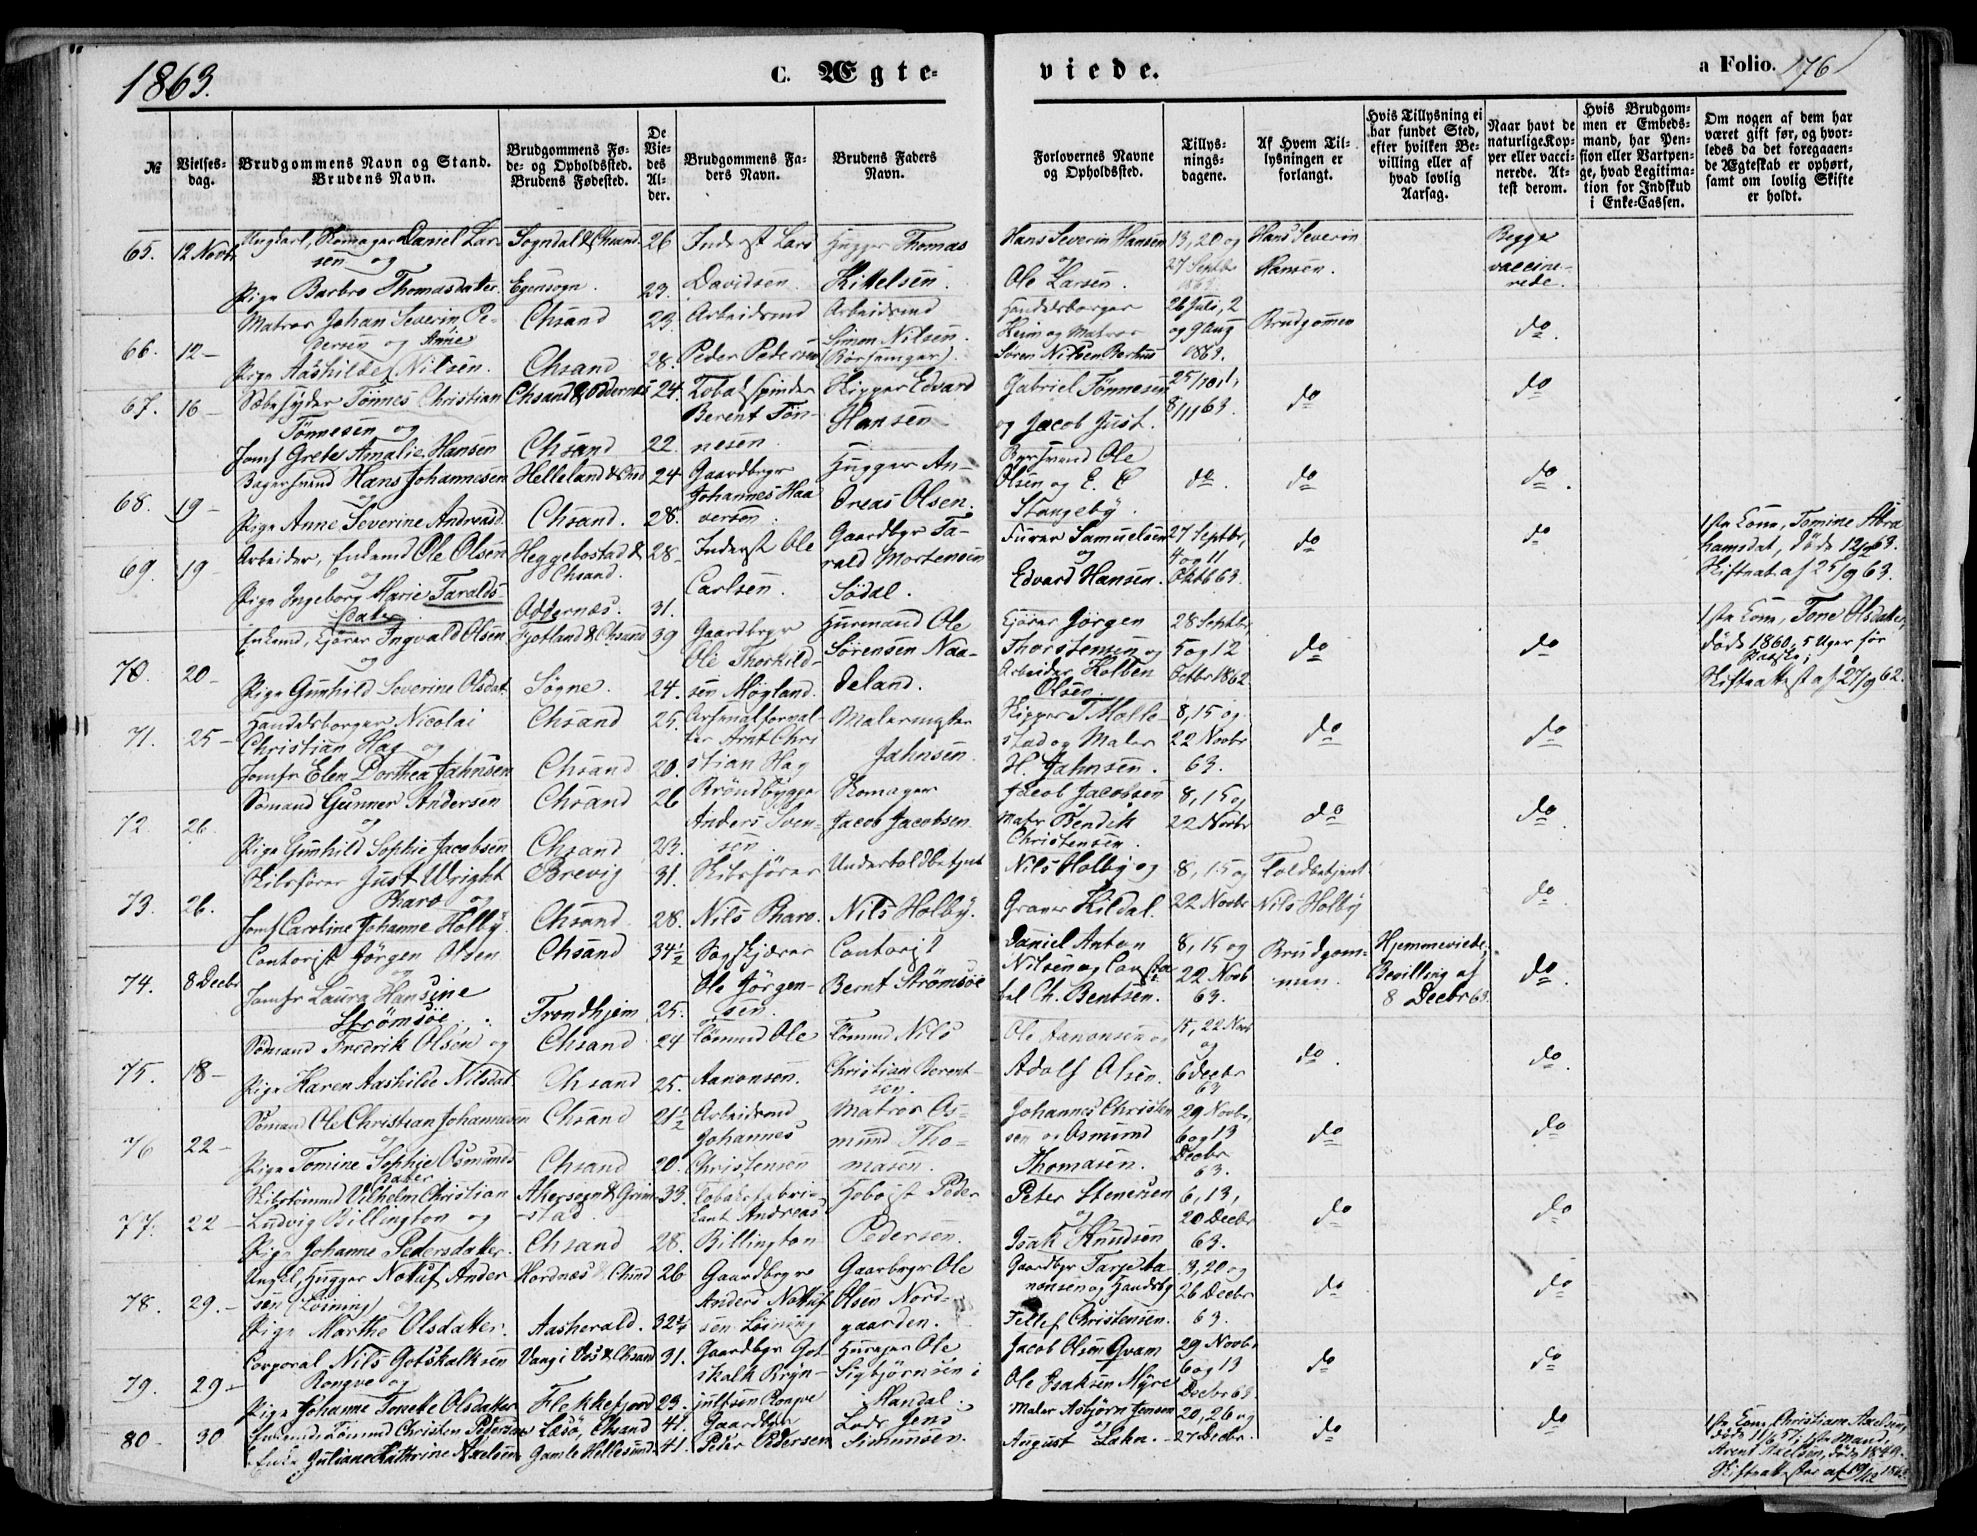 1863.
C. Ægte-
viede.
a Folio. 176
№
Vielses-
dag.
Brudgommens Navn og Stand.
Brudens Navn.
Brudgommens Fø-
de- og Opholdssted.
Brudens Fødested.
De
Vie-
des
Al-
der.
Brudgommens Fa-
ders Navn.
Brudens Faders
Navn.
Forlovernes Navne
og Opholdssted.
Tillys-
nings-
dagene.
Af Hvem Til-
lysningen er
forlangt.
Hvis Tillysning ei
har fundet Sted,
efter hvilken Be-
villing eller af
hvad lovlig
Aarsag.
Naar havt de
naturlige Kop-
per eller vacci-
nerede. At-
test derom.
Hvis Brudgom-
men er Embeds-
mand, har Pen-
sion eller Vartpen-
ge, hvad Legitima-
tion for Indskud
i Enke-Cassen.
Om nogen af dem har
været gift før, og hvor-
ledes da det foregaaen-
de Ægteskab er ophørt,
samt om lovlig Skifte
er holdt.
65. 12 Novbr. Ungkarl, Skomager Daniel Lar-
sen og
Pige Barbro Thomasdatter
Sogndal & Chsand
Egensogn.
26
23.
Inderst Lars
Davidsen
Hugger Thomas
Kittelsen.
Hans Severin Hansen
og
Ole Larsen.
13, 20 og
27 Septbr
1863
Hans Severin
Hansen.
Begge
vaccine-
rede.
66. 12 — Matros Johan Severin Pe-
dersen og Anne
Pige Aashilde Nilsen.
Chsand
Chsand
23.
28.
Arbeidsmd
Peder Pedersen
Arbeidsmd
Simon Nilsen.
Handelsborger
Heim og Matros
Søren Nilsen
26 Juli, 2
og 9 Aug
1863.
Brudgommen
do.
67. 16 — Sæbesyder Tønnes Christian
Tønnesen og
Jomf Grete Amalie Hansen
Chsand & Oddernes
Chsand
24.
22.
Tobaksspinder
Berent Tøn-
nesen.
Skipper Edvard
Hansen
Gabriel Tønnesen
og Jacob Just.
25/10, 1,
8/11 63.
do
do
68. 19 — Bagersvend Hans Johannesen
og
Pige Anne Severine Andreasd.
Helleland & Chsd
Chsand.
24
28.
Gaardbrgr
Johannes Haa
versen.
Hugger An-
dreas Olsen.
Ole
Olsen og E. E
Stangeby.
do.
do
do.
69. 19 — Arbeider, Enkemd Ole Olsen
og
Pige Ingeborg Marie Taralds-
datter
Heggebostad &
Chsand.
Oddernæs.
28
31.
Inderst Ole
Carlsen.
Gaardbgr Ta-
rald Mortensen
Sødal.
Furer Samuelsen
og
Edvard Hansen.
27 Septbr,
4 og 11
Oktb 63.
do
do
1ste Kone, Tomine Abra
hamsdat, døde 12/2 63.
Skifteat. af 25/9 63.
70. 20 — Enkemd, Kjører Ingvald Olsen
og
Pige Gunhild Severine Olsdat
Gjotland & Chsand
Søgne.
39
24.
Gaardbrgr
Ole Thorkild-
sen Møgland.
Huusmand Ole
Sørensen Naa-
deland.
Kjører Jørgen
Thorstensen og
Arbeider Holben
Olsen.
28 Septbr,
5 og 12
Octbr 1862.
do
do
1ste Kone, Tone Olsdatter,
døde 1860, 5 Uger før
Paaske;
Skifteattest af 27/9 62.
71. 25 — Handelsborger Nicolai
Christian Hag og
Jomfr Elen Dorthea Jahnsen
Chsand
Chsand
25.
20.
Arsenalforval-
ter Arnt Chri
stian Hag
Malermester
Jahnsen.
Skipper T Molle-
stad og Maler
H. Jahnsen.
8, 15 og
22 Novbr
63.
do
do
72. 26. Sømand Gunner Andersen
og
Pige Gunhild Sophie Jacobsen
Chsand
Chsand
26
23.
Brøndbygger
Anders Sven-
sen.
Skomager
Jacob Jacobsen.
Jacob Jacobsen
Matr Bendik
Christensen.
8, 15 og
22 Novbr
do
do
73. 26. Skibsfører Just Wright
Pharo og
Jomf Caroline Johanne Holby.
Brevig
Chsand
31.
28.
Skibsfører
Nils Pharo.
Undertoldbetjent
Nils Holby.
Nils Holby og
Graver Kildal.
8, 15 og
22 Novbr
Toldbetjent
Nils Holby
do.
74. 8 Decbr Contorist Jørgen Olsen
og
Jomfr Laura Hansine
Strømsøe.
Chsand
Trondhjem
34 1/2
25.
Sagskjærer
Ole Jørgen-
sen.
Contorist
Bernt Strømsøe
Daniel Anton
Nilsen og Consta
bel Ch. Bentsen.
8, 15 og
22 Novb
63.
Brudgom-
men.
Hjemmeviede,
Bevilling af
8 Decbr 63.
do.
75. 18 — Sømand Fredrik Olsen og
Pige Karen Aashilde Nilsdat
Chsand
Chsand
24
25.
Tømmd Ole
Aanonsen.
Tømmd Nils
Christian Berent-
sen.
Ole Aanonsen og
Adolf Olsen.
15, 22 Novb
og
6 Decbr
63
do.
do.
76 22 — Sømand Ole Christian Johannesen
og
Pige Tomine Sophie Osmunds
datter
Chsand
Chsand
21 1/2
20.
Arbeidsmd
Johannes
Christensen
Matros Os-
mund Tho-
masen.
Johannes Christen
sen og Osmund
Thomasen.
29 Novbr,
6 og 13
Decbr
63.
do
do
77. 22 — Skibstømmd Vilhelm Christian
Ludvig Billington og
Pige Johanne Pedersdatter.
Akersogn & Grim-
stad.
Chsand
33.
28.
Tobaksfabri-
kant Andreas
Billington
Hoboist Peder
Pedersen.
Peter Stenersen
og
Isak Knudsen
6, 13,
20 Decbr
63.
do
do
78. 29. — Ungkl, Hugger Notuf Ander
sen (Løining) og
Pige Marthe Olsdatter.
Hordnæs & Chsnd
Aasherald.
26
32 3/4
Gaardbrgr
Anders Notuf
sen Løining
Gaardbrgr Ole
Olsen Nord-
gaarden.
Gaardbgr Tarje Aa-
nonsen og Handsbg
Tellef Christensen.
8, 20 og
26 Decbr
63.
do
do
79. 29 — Corporal Nils Gotskalksen
Rongve og
Pige Johanne Tomette Olsdatter
Vang i Vos & Chsand
Flekkefjord
31.
23.
Gaardbgr Got-
skalk Bryn-
julfsen Rongve
Huusejer Ole
Sigbjørnsen i
Mandal.
Jacob Olsen Qvam
Ole Isaksen Myre
29 Novbr
6 og 13
Decbr 63
do
do
80 — 30 Enkemd, Tømmd Christen Pedersen
Enke Juliane Kathrine Axelsen
Læsø, Chsand
Gamle Hellesund.
41.
41.
Gaardbgr
Peter Pedersen
Lods Jens
Simonsen.
Maler Asbjørn Jensen
og
August Hahn.
20, 26 og
27 Decbr.
do
do
1ste Kone, Christiane Axelsen,
døde 11/6 57; 1ste Mand,
Arent Axelsen, døde 1849.
Skifteattester af 19/12 1863